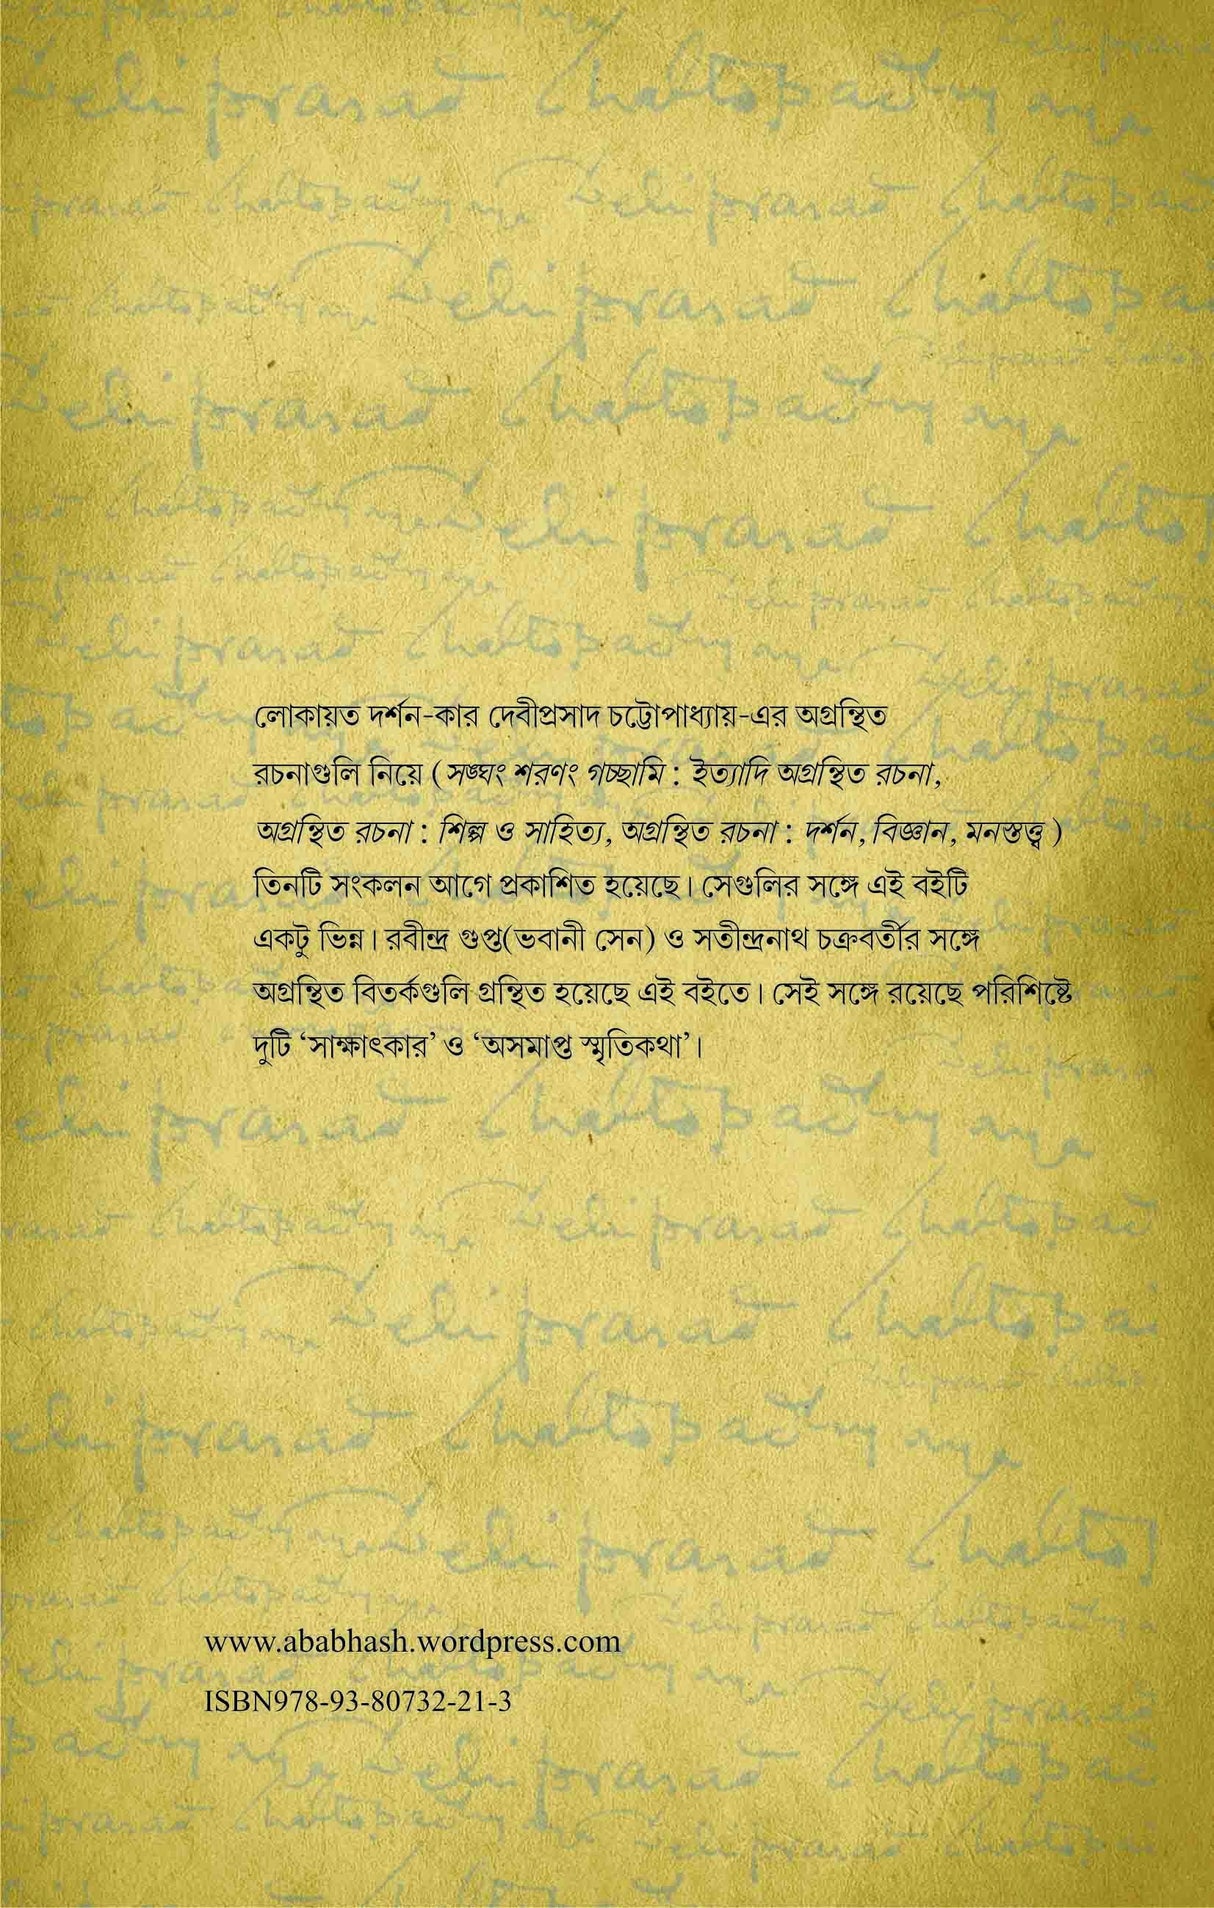 লোকায়ত দর্শন-কার দেবীপ্রসাদ চট্টোপাধ্যায়-এর অগ্রন্থিত
রচনাগুলি নিয়ে (সঙ্ঘং শরণং গচ্ছামি : ইত্যাদি অগ্রন্থিত রচনা,
অগ্রন্থিত রচনা : শিল্প ও সাহিত্য, অগ্রন্থিত রচনা : দর্শন, বিজ্ঞান, মনস্তত্ত্ব)
তিনটি সংকলন আগে প্রকাশিত হয়েছে। সেগুলির সঙ্গে এই বইটি
একটু ভিন্ন। রবীন্দ্র গুপ্ত(ভবানী সেন) ও সতীন্দ্রনাথ চক্রবর্তীর সঙ্গে
অগ্রন্থিত বিতর্কগুলি গ্রন্থিত হয়েছে এই বইতে। সেই সঙ্গে রয়েছে পরিশিষ্টে
দুটি ‘সাক্ষাৎকার’ ও ‘অসমাপ্ত স্মৃতিকথা’।
www.ababhash.wordpress.com
ISBN978-93-80732-21-3